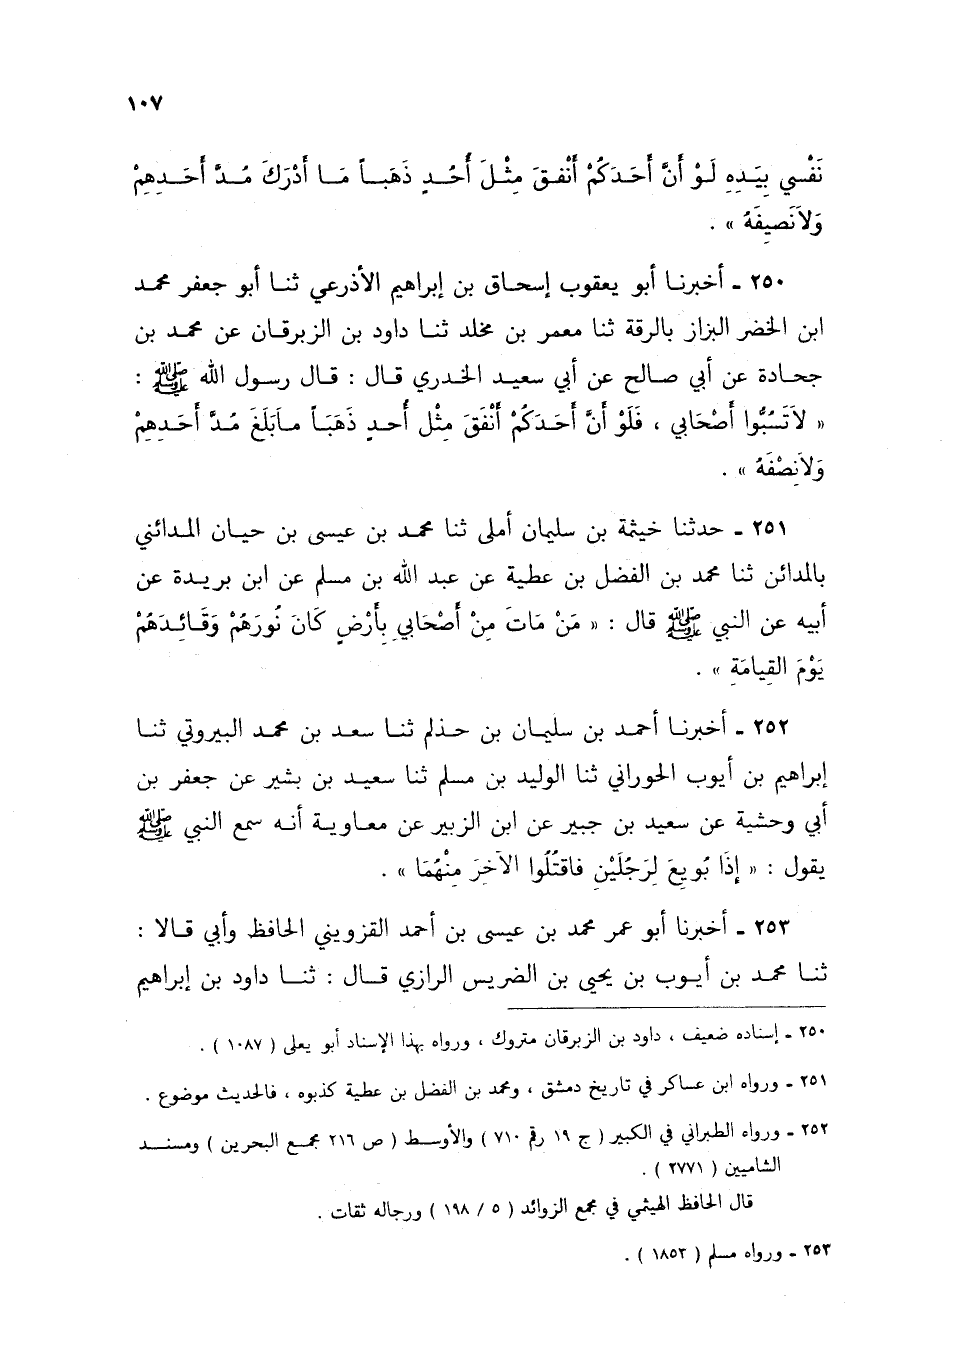 ١٠٧
نَفْسي بِيَدِهِ لَوْ أَنَّ أَحَدَكُمْ أَنْفقَ مِثْلَ أُحُدٍ ذَهَبـاً مَـا أَدْرَكَ مُـدَّ أَحَـدِهِمْ
وَلاَنَصِيفَهُ » .
٢٥٠ ـ أخبرنـا أبو يعقوب إسحـاق بن إبراهيم الأذرعي ثنـا أبو جعفر محمـد
ابن الخضر البزاز بالرقة ثنا معمر بن مخلد ثنـا داود بن الزبرقـان عن محمـد بن
جحادة عن أبي صـالح عن أبي سعيـد الخـدري قـال : قـال رسـول الله ﷺ :
« لاَتَسُبُّوا أَصْحَابي ، فَلَوْ أَنَّ أَحَدَكُمْ أَنْفَقَ مِثْل أُحـدٍ ذَهَبَـاً مـابَلَغَ مُـدَّ أَحَـدِهِمْ
وَلاَنِصْفَهُ » .
٢٥١ ـ حدثنـا خيثمة بن سليمان أملى ثنا محمـد بن عيسى بن حيـان المـدائني
بالمدائن ثنا محمد بن الفضل بن عطية عن عبد الله بن مسلم عن ابن بريـدة عن
أبيه عن النبي ﷺ قال : « مَنْ مَاتَ مِنْ أَصْحَابي بِأَرْضٍ كَانَ نُورَهُمْ وَقَـائِـدَهُمْ
يَوْمَ القِيامَةِ » .
٢٥٢ ـ أخبرنـا أحمـد بن سليمـان بن حـذلم ثنـا سعـد بن محمـد البيروتي ثنـا
إبراهيم بن أيوب الحوراني ثنا الوليد بن مسلم ثنا سعيـد بن بشير عن جعفر بن
أبي وحشية عن سعيد بن جبير عن ابن الزبير عن معـاويـة أنـه سمع النبي ﷺ
يقول : « إِذَا بُويِعَ لِرَجُلَيْنِ فاقتُلُوا الآخَرَ مِنْهُمَا » .
٢٥٣ ـ أخبرنا أبو عمر محمد بن عيسى بن أحمد القزويني الحافظ وأبي قـالا :
ثنـا محمـد بن أيـوب بن يحيى بن الضريس الرازي قـال : ثنـا داود بن إبراهيم
٢٥٠ ـ إسناده ضعيف ، داود بن الزبرقان متروك ، ورواه بهذا الإسناد أبو يعلى ( ١٠٨٧ ) .
٢٥١ ـ ورواه ابن عساكر في تاريخ دمشق ، ومحمد بن الفضل بن عطية كذبوه ، فالحديث موضوع .
٢٥٢ ـ ورواه الطبراني في الكبير ( ج ١٩ رقم ٧١٠ ) والأوسـط ( ص ٢١٦ مجمـع البحرين ) ومسنـد
الشاميين ( ٢٧٧١ ) .
قال الحافظ الهيثمي في مجمع الزوائد ( ٥ / ١٩٨ ) ورجاله ثقات .
٢٥٣ ـ ورواه مسلم ( ١٨٥٣ ) .